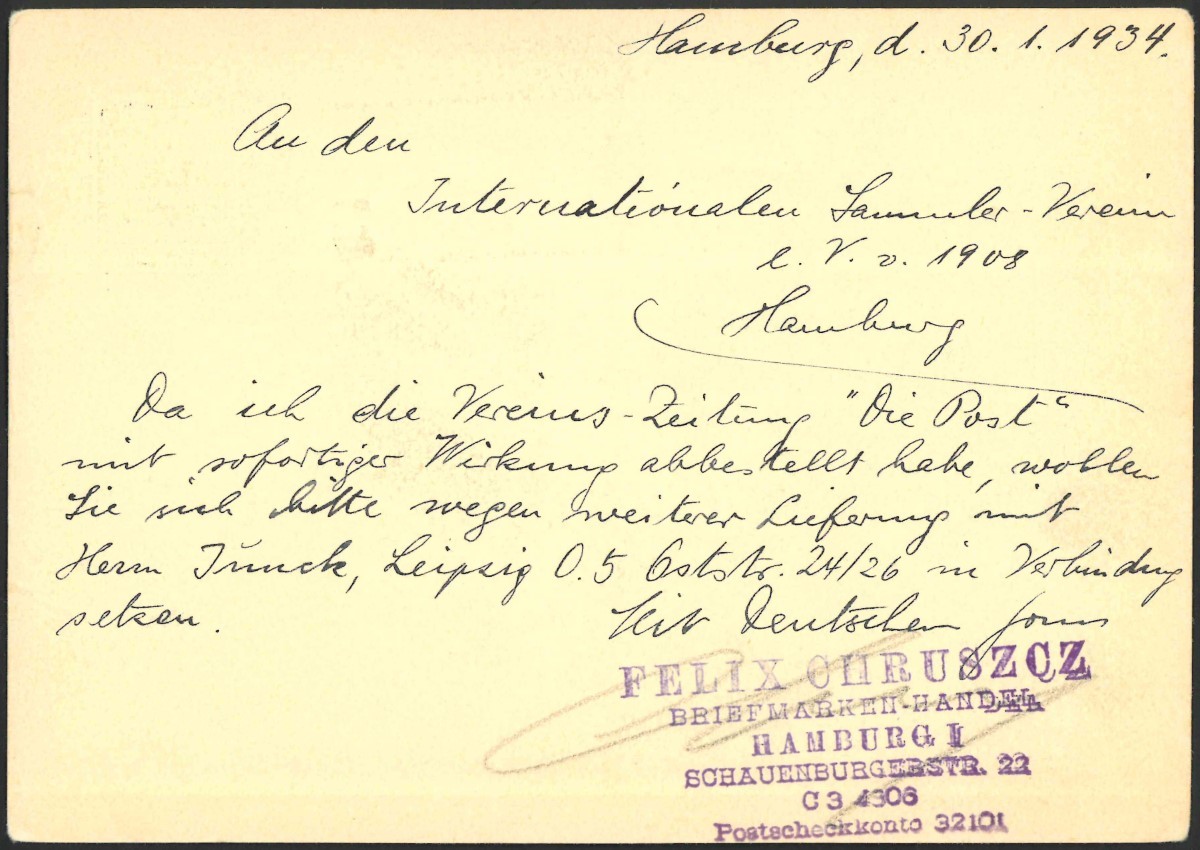 Hamburg, d. 30. 1. 1934.
An den
Internationalen Sammler-Verein
e. V. v. 1908
Hamburg
Da ich die Vereins-Zeitung "Die Post"
mit sofortiger Wirkung abbestellt habe, wollen
Sie sich bitte wegen weiterer Lieferung mit
Herrn Junck, Leipzig O. 5 Oststr. 24/26 in Verbindung
setzen. Mit Deutschem
FELIX CHRUSZCZ
BRIEFMARKEN-HANDEL
HAMBURG 1
SCHAUENBURGERSTR. 22
C 3 4306
Postscheckkonto 32101